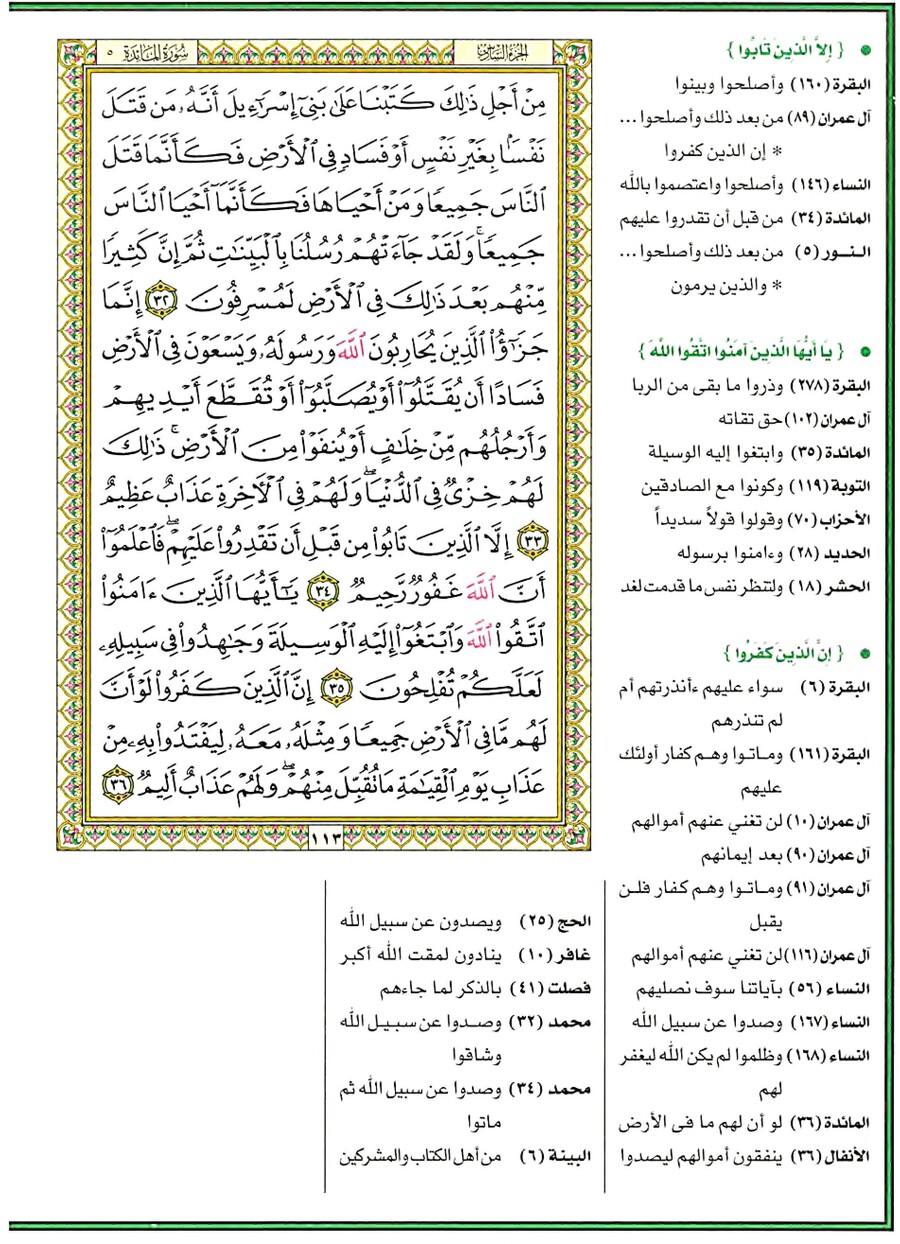 سُورَةُ المَائدَة ٥
الجزء السادس
مِنْ أَجْلِ ذَٰلِكَ كَتَبْنَا عَلَىٰ بَنِىٓ إِسْرَٰٓءِيلَ أَنَّهُۥ مَن قَتَلَ
نَفْسًۢا بِغَيْرِ نَفْسٍ أَوْ فَسَادٍ فِى ٱلْأَرْضِ فَكَأَنَّمَا قَتَلَ
ٱلنَّاسَ جَمِيعًا وَمَنْ أَحْيَاهَا فَكَأَنَّمَآ أَحْيَا ٱلنَّاسَ
جَمِيعًا ۚ وَلَقَدْ جَآءَتْهُمْ رُسُلُنَا بِٱلْبَيِّنَٰتِ ثُمَّ إِنَّ كَثِيرًا
مِّنْهُم بَعْدَ ذَٰلِكَ فِى ٱلْأَرْضِ لَمُسْرِفُونَ ٣٢ إِنَّمَا
جَزَٰٓؤُا۟ ٱلَّذِينَ يُحَارِبُونَ ٱللَّهَ وَرَسُولَهُۥ وَيَسْعَوْنَ فِى ٱلْأَرْضِ
فَسَادًا أَن يُقَتَّلُوٓا۟ أَوْ يُصَلَّبُوٓا۟ أَوْ تُقَطَّعَ أَيْدِيهِمْ
وَأَرْجُلُهُم مِّنْ خِلَٰفٍ أَوْ يُنفَوْا۟ مِنَ ٱلْأَرْضِ ۚ ذَٰلِكَ
لَهُمْ خِزْىٌ فِى ٱلدُّنْيَا ۖ وَلَهُمْ فِى ٱلْءَاخِرَةِ عَذَابٌ عَظِيمٌ
٣٣ إِلَّا ٱلَّذِينَ تَابُوا۟ مِن قَبْلِ أَن تَقْدِرُوا۟ عَلَيْهِمْ ۖ فَٱعْلَمُوٓا۟
أَنَّ ٱللَّهَ غَفُورٌ رَّحِيمٌ ٣٤ يَٰٓأَيُّهَا ٱلَّذِينَ ءَامَنُوا۟
ٱتَّقُوا۟ ٱللَّهَ وَٱبْتَغُوٓا۟ إِلَيْهِ ٱلْوَسِيلَةَ وَجَٰهِدُوا۟ فِى سَبِيلِهِۦ
لَعَلَّكُمْ تُفْلِحُونَ ٣٥ إِنَّ ٱلَّذِينَ كَفَرُوا۟ لَوْ أَنَّ
لَهُم مَّا فِى ٱلْأَرْضِ جَمِيعًا وَمِثْلَهُۥ مَعَهُۥ لِيَفْتَدُوا۟ بِهِۦ مِنْ
عَذَابِ يَوْمِ ٱلْقِيَٰمَةِ مَا تُقُبِّلَ مِنْهُمْ ۖ وَلَهُمْ عَذَابٌ أَلِيمٌ ٣٦
١١٣
• { إِلاَّ الَّذِينَ تَابُوا }
البقرة (١٦٠) وأصلحوا وبينوا
آل عمران (٨٩) من بعد ذلك وأصلحوا ...
* إن الذين كفروا
النساء (١٤٦) وأصلحوا واعتصموا بالله
المائدة (٣٤) من قبل أن تقدروا عليهم
النـور (٥) من بعد ذلك وأصلحوا ...
* والذين يرمون
• { يَا أَيُّهَا الَّذِينَ آمَنُوا اتَّقُوا اللهَ }
البقرة (٢٧٨) وذروا ما بقى من الربا
آل عمران (١٠٢) حق تقاته
المائدة (٣٥) وابتغوا إليه الوسيلة
التوبة (١١٩) وكونوا مع الصادقين
الأحزاب (٧٠) وقولوا قولاً سديداً
الحديد (٢٨) وءامنوا برسوله
الحشر (١٨) ولتنظر نفس ما قدمت لغد
• { إِنَّ الَّذِينَ كَفَرُوا }
البقرة (٦) سواء عليهم ءأنذرتهم أم
لم تنذرهم
البقرة (١٦١) ومـاتـوا وهـم كفار أولئك
عليهم
آل عمران (١٠) لن تغني عنهم أموالهم
آل عمران (٩٠) بعد إيمانهم
آل عمران (٩١) ومـاتـوا وهـم كفار فلـن
يقبل
آل عمران (١١٦) لن تغني عنهم أموالهم
النساء (٥٦) بآياتنا سوف نصليهم
النساء (١٦٧) وصدوا عن سبيل الله
النساء (١٦٨) وظلموا لم يكن الله ليغفر
لهم
المائدة (٣٦) لو أن لهم ما فى الأرض
الأنفال (٣٦) ينفقون أموالهم ليصدوا
الحج (٢٥) ويصدون عن سبيل الله
غافر (١٠) ينادون لمقت الله أكبر
فصلت (٤١) بالذكر لما جاءهم
محمد (٣٢) وصـدوا عن سـبـيـل الله
وشاقوا
محمد (٣٤) وصدوا عن سبيل الله ثم
ماتوا
البينة (٦) من أهل الكتاب والمشركين